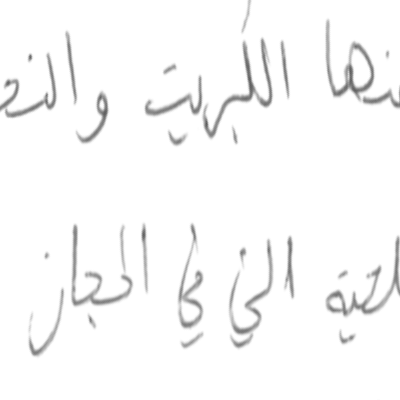 منها الكبريت والنح
التي في الحجاز